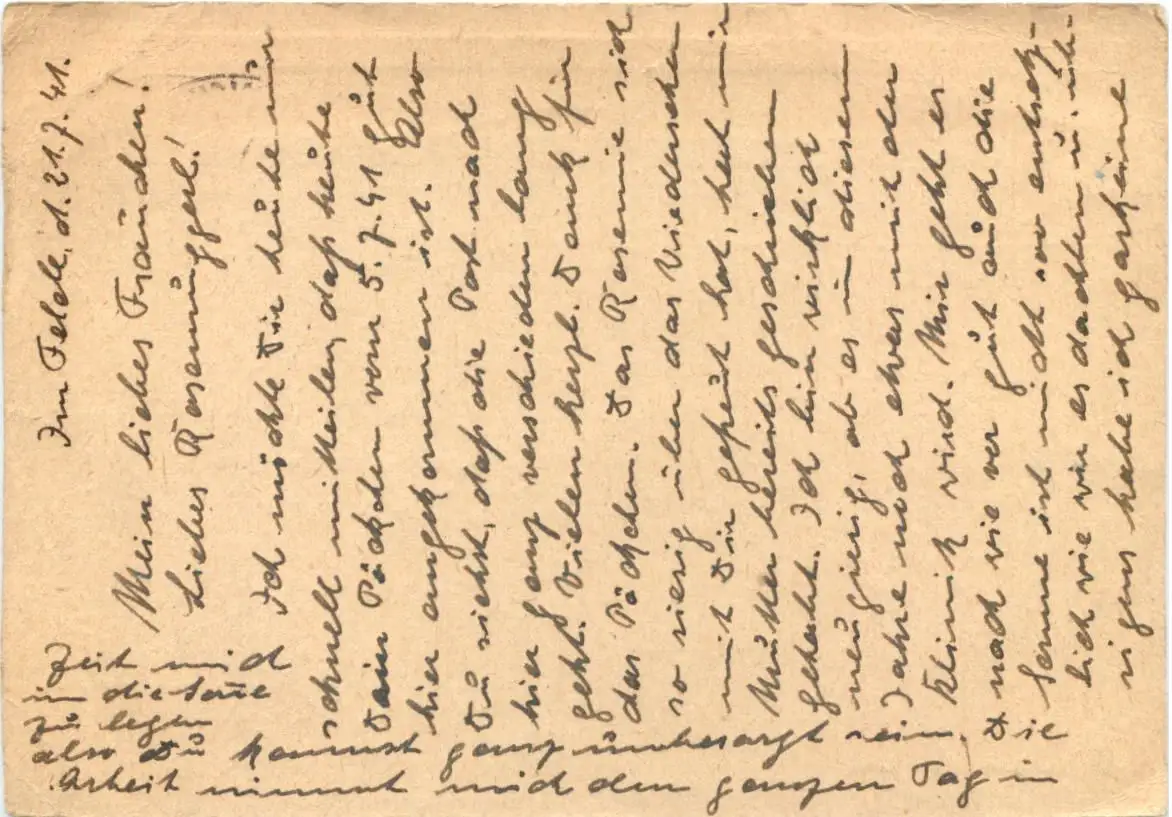 Im Felde, d. 21.7.41.
Mein liebes Frauchen!
Liebes Rosemuggel!
Ich möchte Dir heute nur
schnell mitteilen, daß heute
Dein Päckchen vom 5.7.41 gut
hier angekommen ist. Also
Du siehst, daß die Post nach
hier ganz verschieden lang
geht. Vielen herzl. Dank für
das Päckchen. Das Rosemie sich
so riesig über das Wiedersehen
mit Dir gefreut hat, hat mir
Mutter bereits geschrieben
gehabt. Ich bin wirklich
neugierig, ob es in diesem
Jahre noch etwas mit der
Klinik wird. Mir geht es
nach wie vor gut auch die
Sonne ist nicht so entsetz-
lich wie wir es dachten u. üb-
rigens habe ich gar keine
Zeit mich
in die Sonne
zu legen
also Du kannst ganz unbesorgt sein. Die
Arbeit nimmt mich den ganzen Tag in